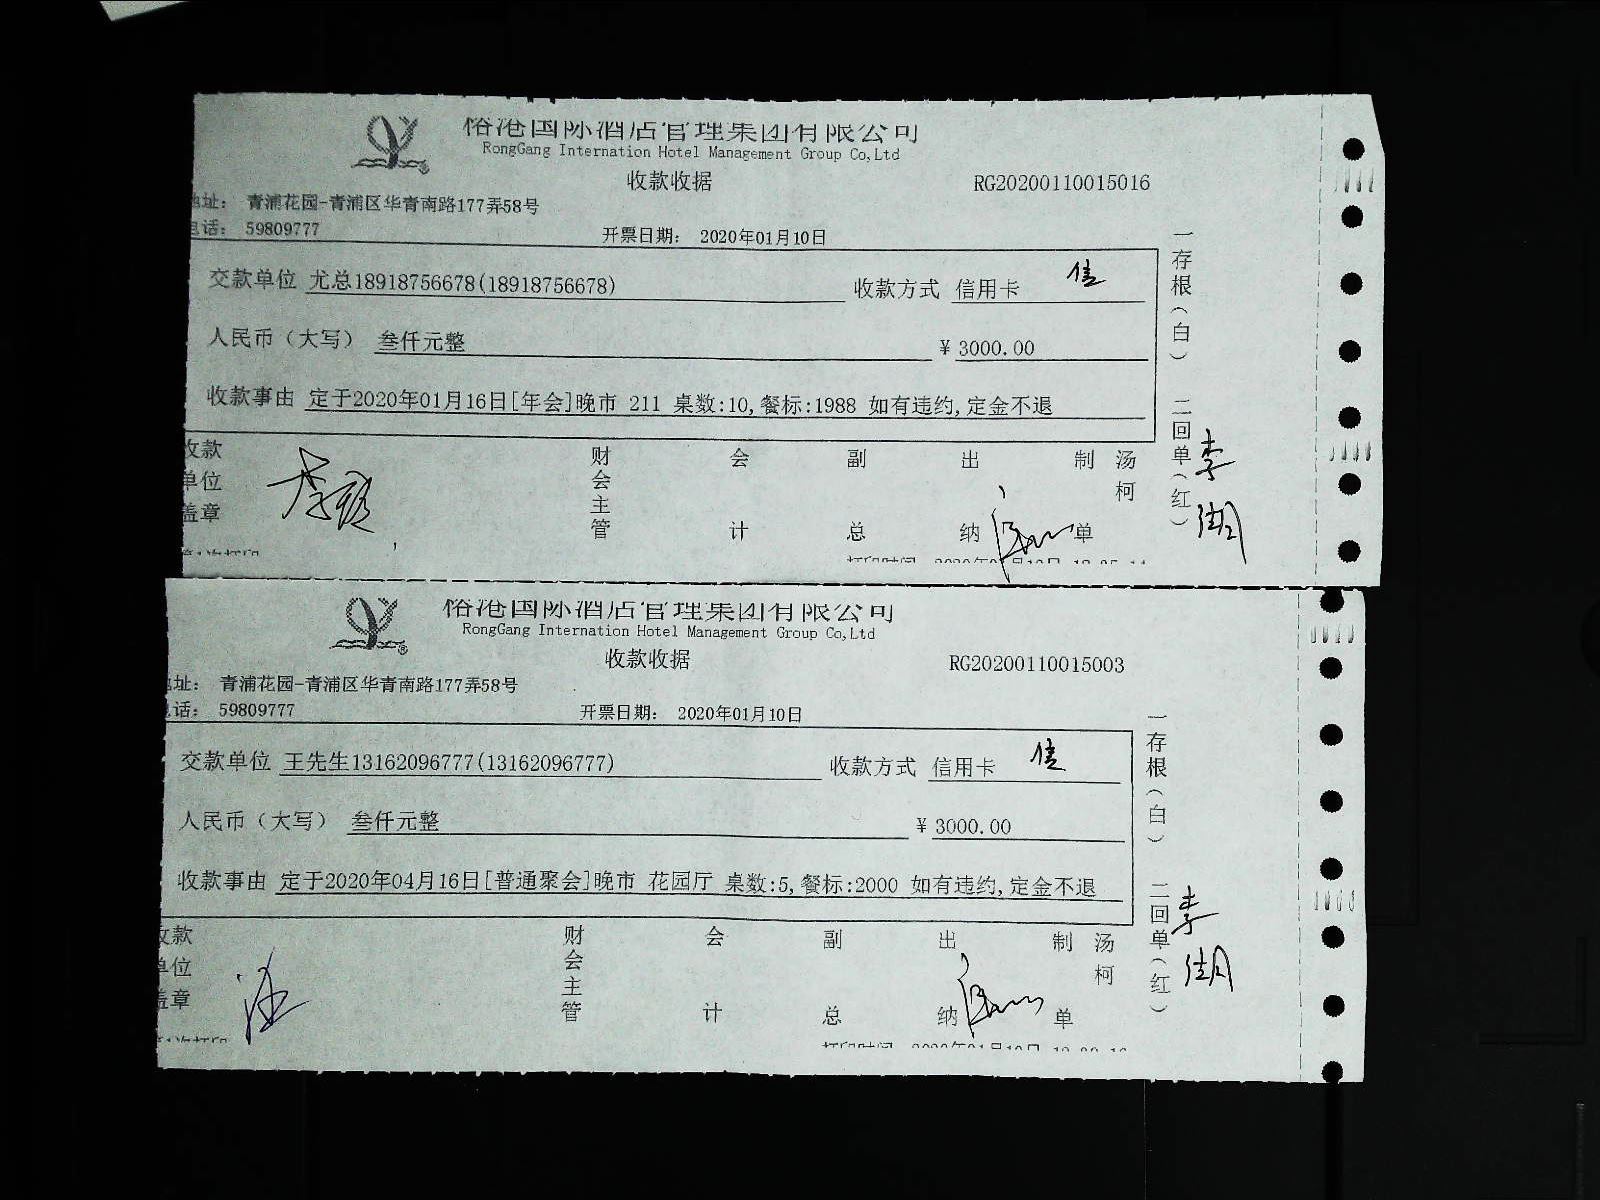 榕港国际酒店管理集团有限公司
RongGang Internation Hotel Management Group Co,Ltd
收款收据 RG20200110015016
地址： 青浦花园-青浦区华青南路177弄58号
电话： 59809777 开票日期： 2020年01月10日
交款单位 尤总18918756678(18918756678) 收款方式 信用卡 信
人民币（大写） 叁仟元整 ¥ 3000.00
收款事由 定于2020年01月16日[年会]晚市 211 桌数:10,餐标:1988 如有违约,定金不退
收款单位盖章 财会主管 会计 副总 出纳 制单 汤柯
一存根（白） 二回单（红）
第1次打印 打印时间 2020年01月10日
榕港国际酒店管理集团有限公司
RongGang Internation Hotel Management Group Co,Ltd
收款收据 RG20200110015003
地址： 青浦花园-青浦区华青南路177弄58号
电话： 59809777 开票日期： 2020年01月10日
交款单位 王先生13162096777(13162096777) 收款方式 信用卡 信
人民币（大写） 叁仟元整 ¥ 3000.00
收款事由 定于2020年04月16日[普通聚会]晚市 花园厅 桌数:5,餐标:2000 如有违约,定金不退
收款单位盖章 财会主管 会计 副总 出纳 制单 汤柯
一存根（白） 二回单（红）
第1次打印 打印时间 2020年01月10日